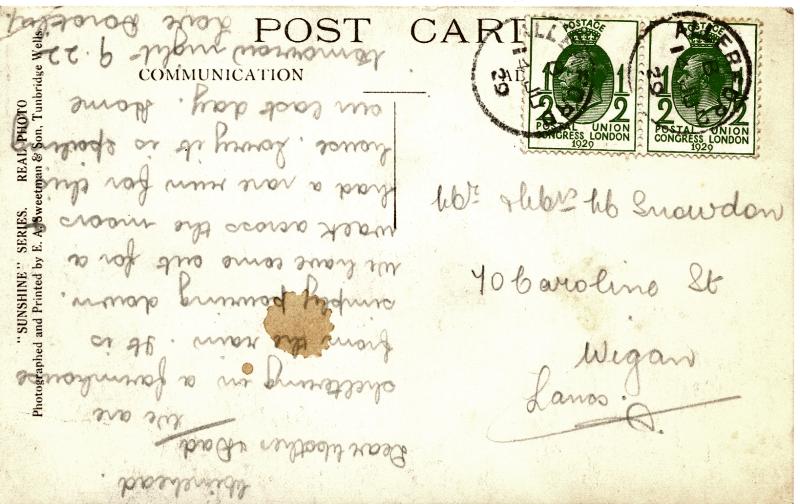 POST CARD
COMMUNICATION
AD
POSTAGE
1/2 1/2
POSTAL UNION
CONGRESS LONDON
1929
POSTAGE
1/2 1/2
POSTAL UNION
CONGRESS LONDON
1929
29
29
Mr & Mrs H Snowdon
70 Caroline St
Wigan
Lancs.
"SUNSHINE" SERIES. REAL PHOTO
Photographed and Printed by E. A. Sweetman & Son, Tunbridge Wells.
Minehead.
Dear Mother & Dad
We are
sheltering in a farmhouse
from the rain. It is
simply pouring down.
We have come out for a
walk across the moors &
had a rare run for this
house. Sorry it is spoiling
our last day. Home
tomorrow night 9.22
Love Dorothy